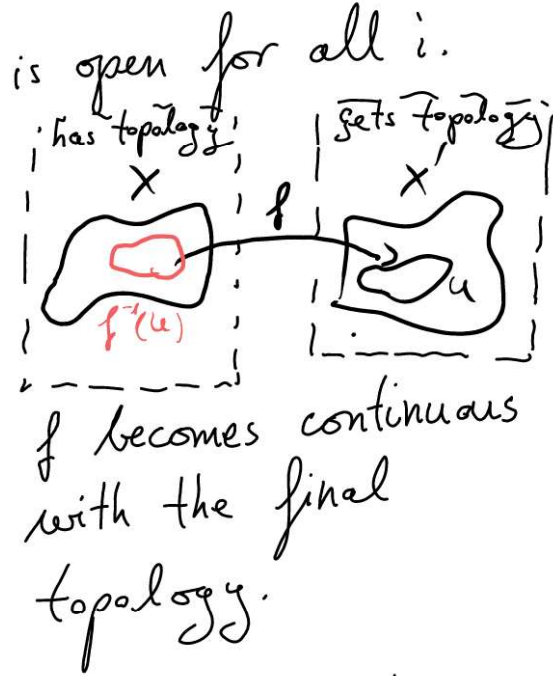 is open for all i.
has topology
gets topology
X
X'
f
u
f⁻¹(u)
f becomes continuous
with the final
topology.